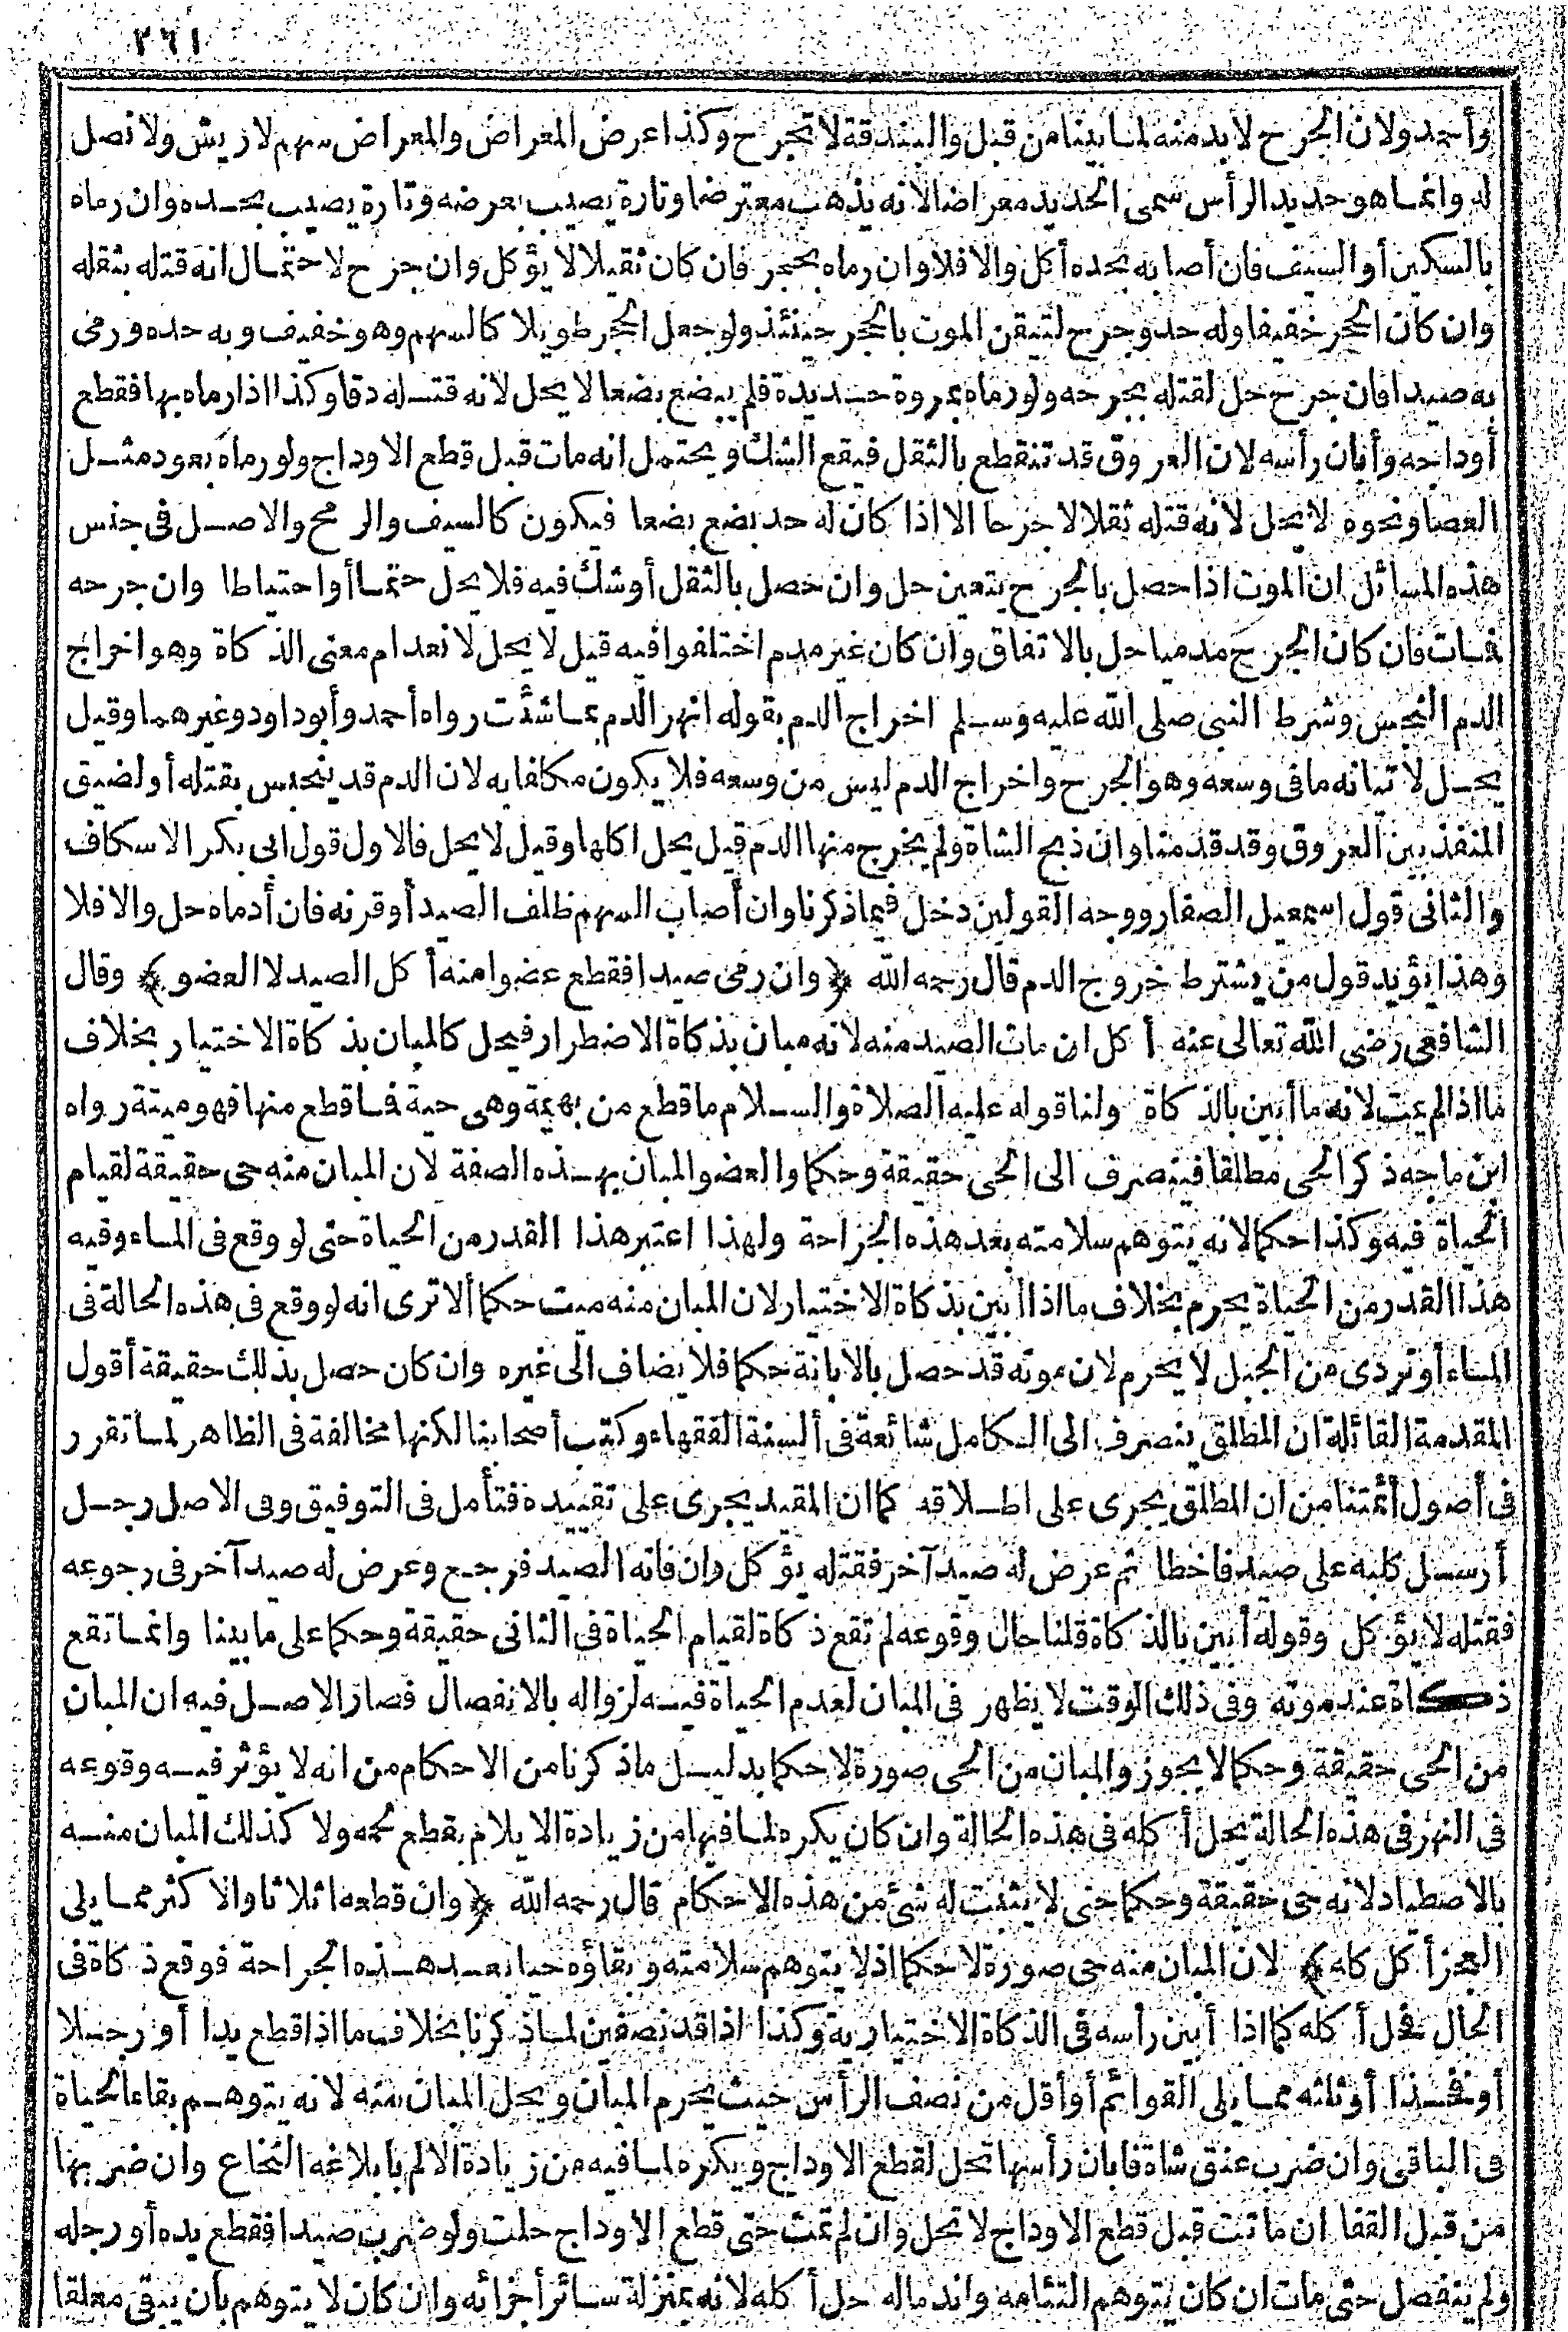 ٣٦١
وأحمد ولان الجرح لابد منه لما بينا من قبل والبندقة لا تجرح وكذا عرض المعراض والمعراض سهم لا ريش ولا نصل
له وانما هو حديد الرأس سمى الحديد معراضا لانه يذهب معترضا وتارة يصيب بعرضه وتارة يصيب بحده وان رماه
بالسكين أو السيف فان أصابه بحده أكل والا فلا وان رماه بحجر فان كان ثقيلا لا يؤكل وان جرح لاحتمال انه قتله بثقله
وان كان الحجر خفيفا وله حد وجرح لتيقن الموت بالحجر حينئذ ولو جعل الحجر طويلا كالسهم وهو خفيف وبه حده ورمى
به صيدا فان جرح حل لقتله بجرحه ولو رماه بمروة حديدة فلم يبضع بضعا لا يحل لانه قتله دقا وكذا اذا رماه بها فقطع
أوداجه وأبان رأسه لان العروق قد تنقطع بالثقل فيقع الشك ويحتمل انه مات قبل قطع الاوداج ولو رماه بعود مثل
العصا ونحوه لا يحل لانه قتله ثقلا لا جرحا الا اذا كان له حد بضع بضعا فيكون كالسيف والرمح والاصل فى جنس
هذه المسائل ان الموت اذا حصل بالجرح بتعين حل وان حصل بالثقل أو شك فيه فلا يحل حتما أو احتياطا وان جرحه
فمات فان كان الجرح مدميا حل بالاتفاق وان كان غير مدم اختلفوا فيه قيل لا يحل لانعدام معنى الذكاة وهو اخراج
الدم النجس وشرط النبى صلى الله عليه وسلم اخراج الدم بقوله انهر الدم بما شئت رواه أحمد وأبو داود وغيرهما وقيل
يحل لاتيانه ما فى وسعه وهو الجرح واخراج الدم ليس من وسعه فلا يكون مكلفا به لان الدم قد ينحبس بقتله أو لضيق
المنفذ بين العروق وقد قدمنا وان ذبح الشاة ولم يخرج منها الدم قيل يحل اكلها وقيل لا يحل فالاول قول ابى بكر الاسكاف
والثانى قول اسمعيل الصفار ووجه القولين دخل فيما ذكرنا وان أصاب السهم ظلف الصيد أو قرنه فان أدماه حل والا فلا
وهذا يؤيد قول من يشترط خروج الدم قال رحمه الله ﴿وان رمى صيدا فقطع عضوا منه أكل الصيد لا العضو﴾ وقال
الشافعى رضى الله تعالى عنه أكل ان مات الصيد منه لانه مبان بذكاة الاضطرار فيحل كالمبان بذكاة الاختيار بخلاف
ما اذا لم يمت لانه ما أبين بالذكاة ولنا قوله عليه الصلاة والسلام ما قطع من بهيمة وهى حية فما قطع منها فهو ميتة رواه
ابن ماجه ذكر الحى مطلقا فينصرف الى الحى حقيقة وحكما والعضو المبان بهذه الصفة لان المبان منه حى حقيقة لقيام
الحياة فيه وكذا حكما لانه يتوهم سلامته بعد هذه الجراحة ولهذا اعتبر هذا القدر من الحياة حتى لو وقع فى الماء وفيه
هذا القدر من الحياة يحرم بخلاف ما اذا أبين بذكاة الاختيار لان المبان منه ميت حكما ألا ترى انه لو وقع فى هذه الحالة فى
الماء أو تردى من الجبل لا يحرم لان موته قد حصل بالابانة حكما فلا يضاف الى غيره وان كان حصل بذلك حقيقة أقول
المقدمة القائلة ان المطلق ينصرف الى الكامل شائعة فى ألسنة الفقهاء وكتب أصحابنا لكنها مخالفة فى الظاهر لما تقرر
فى أصول أئمتنا من ان المطلق يجرى على اطلاقه كما ان المقيد يجرى على تقييده فتأمل فى التوفيق وفى الاصل رجل
أرسل كلبه على صيد فاخطا ثم عرض له صيد آخر فقتله يؤكل وان فاته الصيد فرجع وعرض له صيد آخر فى رجوعه
فقتله لا يؤكل وقوله أبين بالذكاة قلنا حال وقوعه لم تقع ذكاة لقيام الحياة فى الثانى حقيقة وحكما على ما بينا وانما تقع
ذكاة عند موته وفى ذلك الوقت لا يظهر فى المبان لعدم الحياة فيه لزواله بالانفصال فصار الاصل فيه ان المبان
من الحى حقيقة وحكما لا يجوز والمبان من الحى صورة لا حكما بدليل ما ذكرنا من الاحكام من انه لا يؤثر فيه وقوعه
فى النهر فى هذه الحالة يحل أكله فى هذه الحالة وان كان يكره لما فيها من زيادة الايلام بقطع لحمه ولا كذلك المبان منه
بالاصطياد لانه حى حقيقة وحكما حتى لا يثبت له شئ من هذه الاحكام قال رحمه الله ﴿وان قطعه اثلاثا والاكثر مما يلى
العجز أكل كله﴾ لان المبان منه حى صورة لا حكما اذ لا يتوهم سلامته وبقاؤه حيا بعد هذه الجراحة فوقع ذكاة فى
الحال فحل أكله كما اذا أبين رأسه فى الذكاة الاختيارية وكذا اذا قد نصفين لما ذكرنا بخلاف ما اذا قطع يدا أو رجلا
أو فخذا أو ثلثه مما يلى القوائم أو أقل من نصف الرأس حيث يحرم المبان ويحل المبان منه لانه يتوهم بقاء الحياة
فى الباقى وان ضرب عنق شاة فابان رأسها تحل لقطع الاوداج ويكره لما فيه من زيادة الالم بابلاغه النخاع وان ضربها
من قبل القفا ان ماتت قبل قطع الاوداج لا تحل وان لم تمت حتى قطع الاوداج حلت ولو ضرب صيدا فقطع يده أو رجله
ولم ينفصل حتى مات ان كان يتوهم التئامه واندماله حل أكله لانه بمنزلة سائر أجزائه وان كان لا يتوهم بأن يبقى معلقا